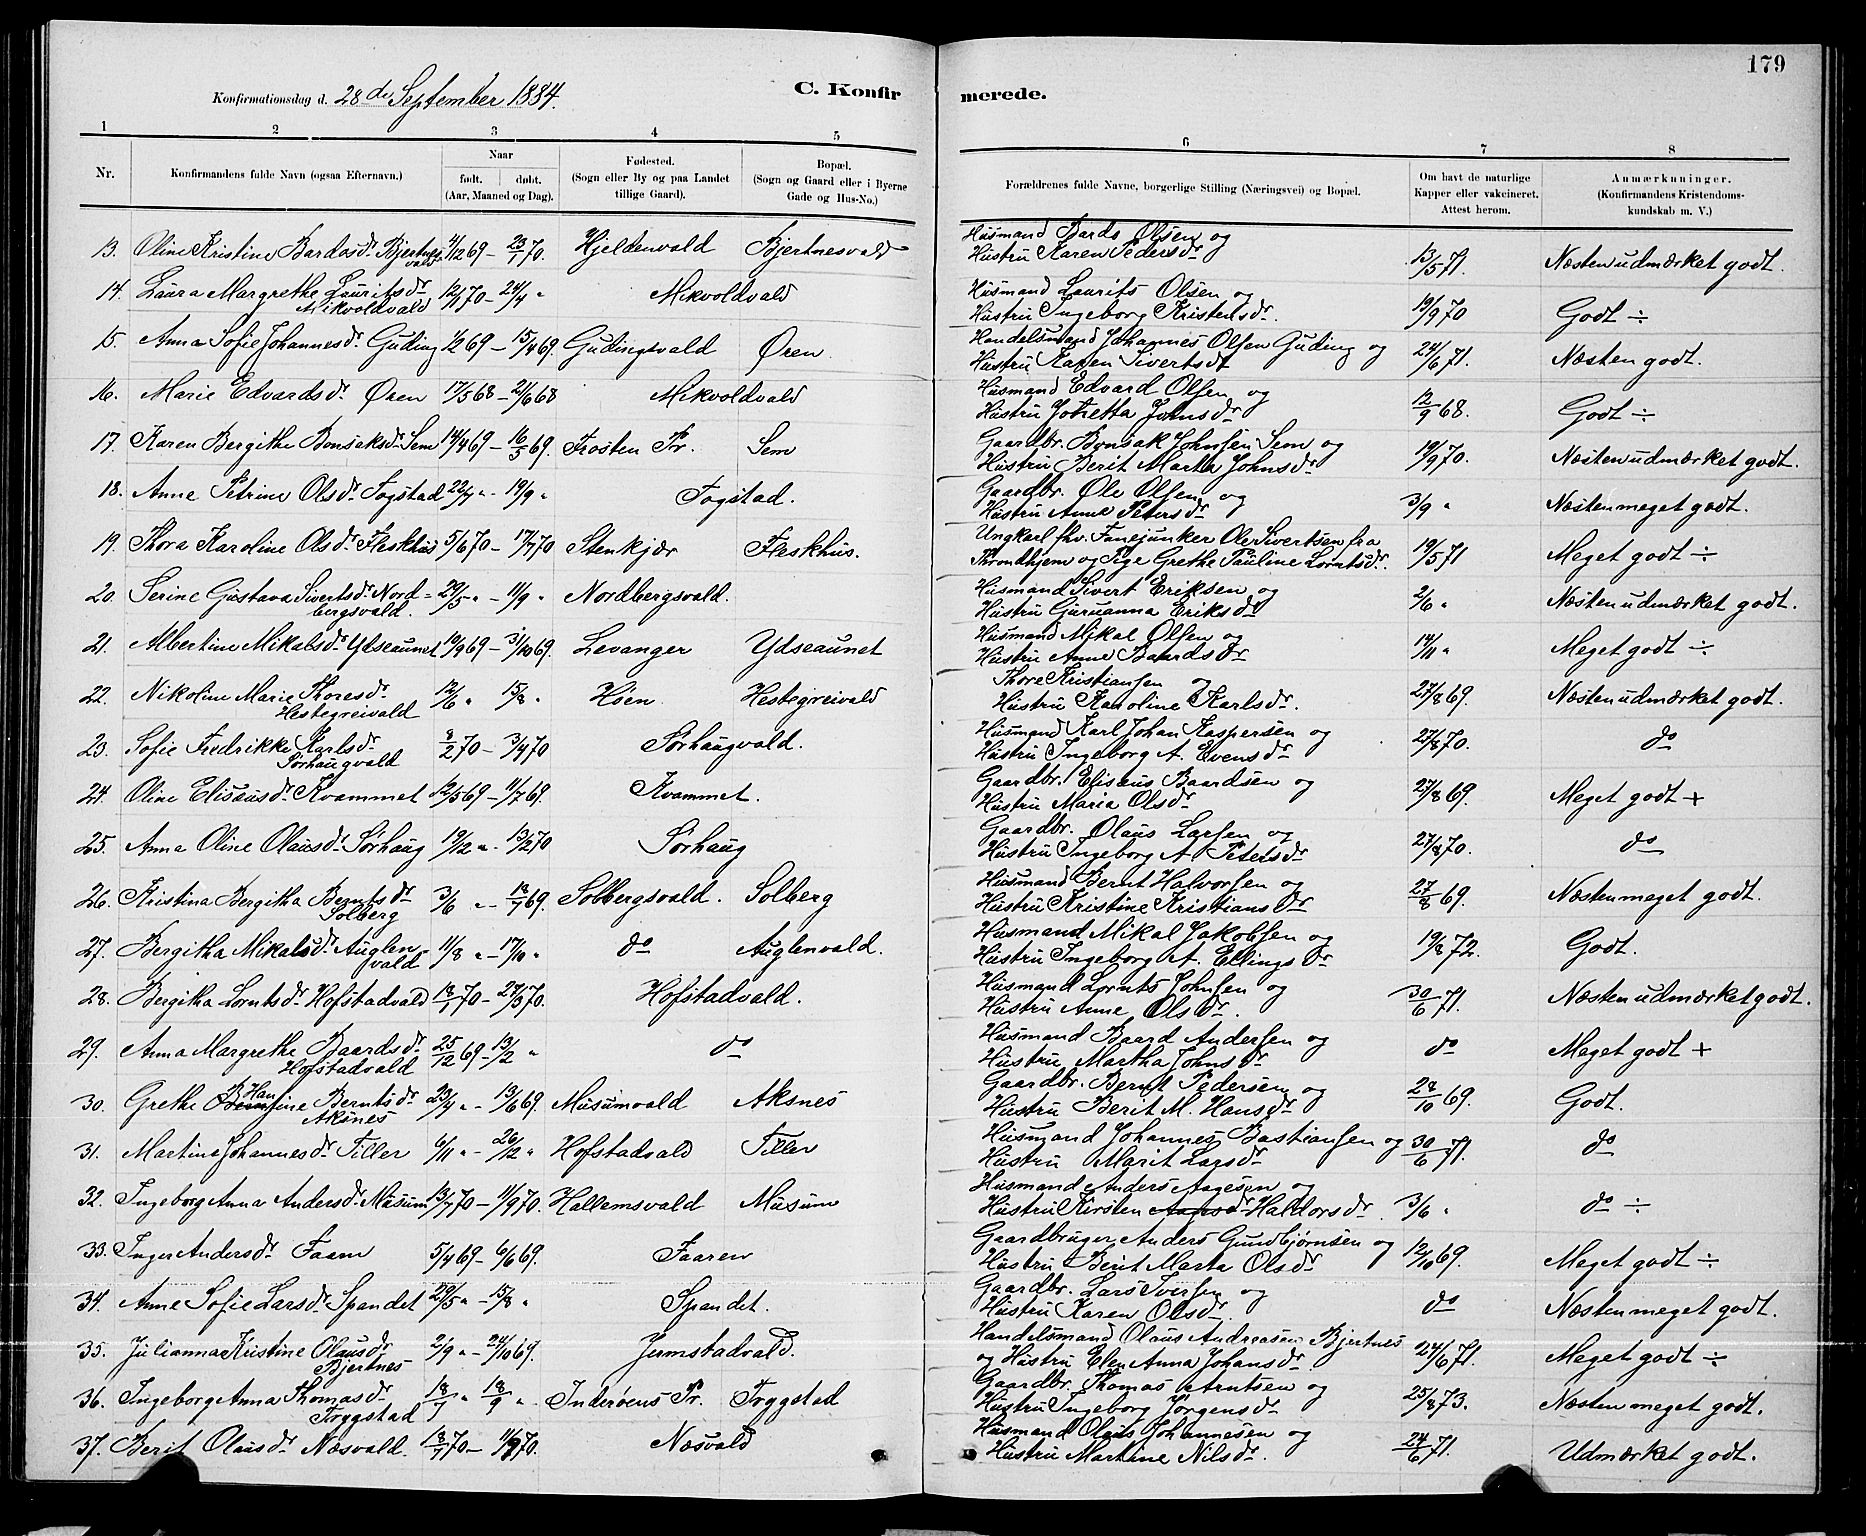 179
Konfirmationsdag d. 28de September 1884.
C. Konfirmerede.
1 2 3 4 5 6 7 8
Nr. Konfirmandens fulde Navn (ogsaa Efternavn.) Naar født. døbt. (Aar, Maaned og Dag). Fødested. (Sogn eller By og paa Landet tillige Gaard). Bopæl. (Sogn og Gaard eller i Byerne Gade og Hus-No.) Forældrenes fulde Navne, borgerlige Stilling (Næringsvei) og Bopæl. Om havt de naturlige Kapper eller vakcineret. Attest herom. Anmærkninger. (Konfirmandens Kristendoms-kundskab m. V.)
13. Oline Kristine Bardosdr. Bjertnesvald 4/12 69 – 23/1 70. Hjeldenvald Bjertnesvald Husmand Bards Olsen og
Hustru Karen Pedersdr 13/5 71. Næsten udmærket godt.
14. Laura Margrethe Lauritsdr. Mikvoldvald 12/1 70 – 24/4 " Mikvoldvald Husmand Laurits Olsen og
Hustru Ingeborg Kristensdr. 19/9 70 Godt ÷
15. Anna Sofie Johannesdr. Guding 1/2 69 – 15/4 69. Gudingsvald Øren. Handelsmand Johannes Olsen Guding og
Hustru Karen Sivertsdt 24/6 71. Næsten godt.
16. Marie Edvardsdr. Øren 17/5 68 – 21/6 68 Mikvoldvald Husmand Edvard Olsen og
Hustru Jobretta Johnsdr 12/9 68. Godt ÷
17. Karen Bergithe Bonsaksdr. Sem 14/4 69 – 16/5 69. Frosten Pr. Sem Gaardbr. Bonsak Johnsen Sem og
Hustru Berit Marta Johnsdr 19/9 70. Næsten udmærket godt.
18. Anne Petrine Olsdr. Fogstad 22/7 " – 19/9 " Fogstad. Gaardbr. Ole Olsen og
Hustru Anne Petersdr 3/9 " Næsten meget godt.
19. Thora Karoline Olsdr. Fleskhus 5/6 70 – 17/7 70 Stenkjær Fleskhus. Ungkarl fhv. Fanejunker Ole Sivertsen fra
Throndhjem og Pige Grethe Pauline Lorntsdr. 19/5 71 Meget godt ÷
20. Serine Gustava Sivertsdr. Nordbergsvald. 29/5 " – 11/9 " Nordbergsvald. Husmand Sivert Eriksen og
Hustru Guruanna Eriksdr 2/6 " Næsten udmærket godt.
21. Albertine Mikalsdr. Ydseaunet 19/9 69 – 31/10 69. Levanger Ydseaunet Husmand Mikal Olsen og
Hustru Anne Baardsdr 14/11 " Meget godt ÷
22. Nikoline Marie Thoresdr. Hestegreivald 12/6 " 15/8 " Høen. Hestegreivald Thore Kristiansen og
Hustru Karoline Karlsdr. 27/8 69. Næsten udmærket godt.
23. Sofie Fredrikke Karlsdr. Sørhaugvald 8/2 70 – 3/4 70 Sørhaugvald. Husmand Karl Johan Kaspersen og
Hustru Ingeborg A. Evensdr. 27/8 70. do
24. Oline Elisæusdr. Kvammet 12/5 69 – 11/7 69. Kvammet. Gaardbr. Elisæus Baardsen og
Hustru Maria Olsdr 27/8 69. Meget godt +
25. Anna Oline Olausdr. Sørhaug 19/12 " – 13/2 70 Sørhaug Gaardbr. Olaus Larsen og
Hustru Ingeborg A Petersdr 27/8 70. do
26. Kristina Bergitha Berntsdr Solberg 3/6 " – 18/7 69. Solbergsvald. Solberg Husmand Bernt Halvorsen og
Hustru Kristine Kristiansdr 27/8 69. Næsten meget godt.
27. Bergitha Mikalsdr. Auglenvald 11/8 " – 17/10 " do Auglenvald. Husmand Mikal Jakobsen og
Hustru Ingeborg A. Ellingsdr 19/8 72. Godt.
28. Bergitha Lorntsdr. Hofstadvald 18/1 70 – 27/3 70. Hofstadvald. Husmand Lornts Johnsen og
Hustru Anne Olsdr. 30/6 71. Næsten udmærket godt.
29. Anna Margrethe Baardsdr. Hofstadvald 25/12 69 – 13/2 " do Husmand Baard Andersen og
Hustru Martha Johnsdr do Meget godt +
30. Grethe Hansine Berntsdr. Aksnes 23/4 " – 13/6 69. Musumvald Aksnes Gaardbr. Bernt Pedersen og
Hustru Berit M. Hansdr 28/10 69. Godt.
31. Martine Johannesdr. Tiller 6/11 " – 26/12 " Hofstadvald Tiller Husmand Johannes Bastiansen og
Hustru Marit Larsdr 30/6 71. do
32. Ingeborg Anna Andersdr. Musum 13/7 70 – 11/9 70. Hallemsvald Musum Husmand Anders Aagesen og
Hustru Kirsten Haldorsdr. 3/6 " do ÷
33. Inger Andersdr. Faaren 5/4 69 – 6/6 69. Faaren Gaardbruger Anders Gundbjørnsen og
Hustru Berit Marta Olsdr 12/10 69. Meget godt ÷
34. Anne Sofie Larsdr. Spandet 29/5 " – 15/8 " Spandet. Gaardbr. Lars Iversen og
Hustru Karen Olsdr. do Næsten meget godt.
35. Julianna Kristine Olausdr Bjertnes 2/9 " – 24/10 69. Jermstadvald. Handelsmand Olaus Andreasen Bjertnes
og Hustru Elen Anna Johansdr. 24/6 71. Meget godt ÷
36. Ingeborg Anna Thomasdr. Trygstad 18/7 " 18/9 " Inderøens Pr. Trygstad Gaardbr. Thomas Arntsen og
Hustru Ingeborg Jørgensdr 25/8 73. Næsten meget godt.
37. Berit Olausdr. Næsvald. 18/7 70 – 11/9 70. Næsvald Husmand Olaus Johannesen og
Hustru Martine Nilsdr. 24/6 71. Udmærket godt.